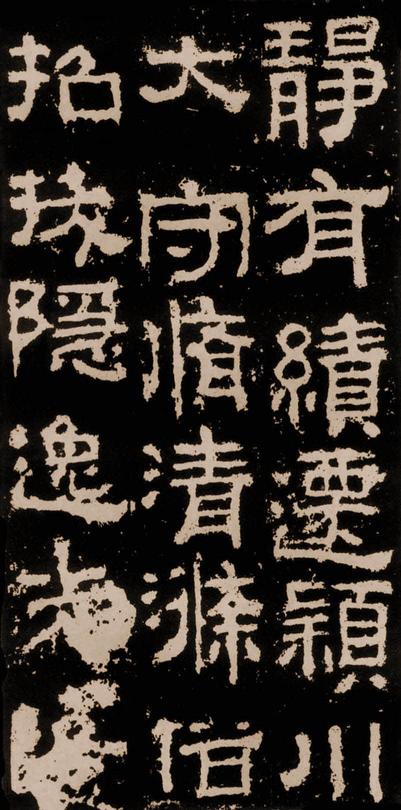 靜有績遷穎川
大守脩清滌俗
招拔隱逸